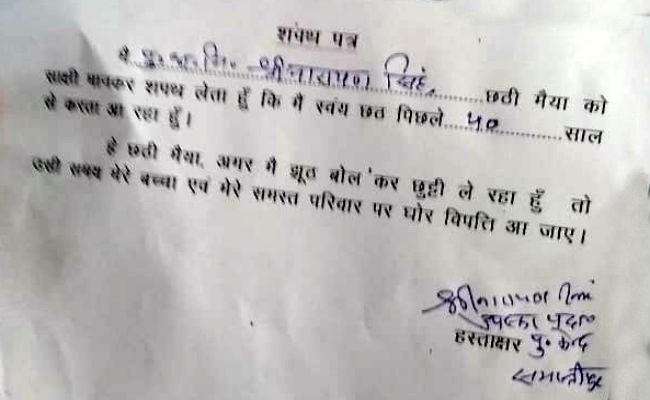 शपथ पत्र
मै पु.अ.नि. श्रीनारायण सिंह, छठी मैया को
साक्षी मानकर शपथ लेता हूँ कि मै स्वंय छठ पिछले ५० साल
से करता आ रहा हूँ।
हे छठी मैया, अगर मै झूठ बोल कर छुट्टी ले रहा हूँ तो
उसी समय मेरे बच्चा एवं मेरे समस्त परिवार पर घोर विपत्ति आ जाए।
श्रीनारायण सिंह
हस्ताक्षर पु० केन्द्र